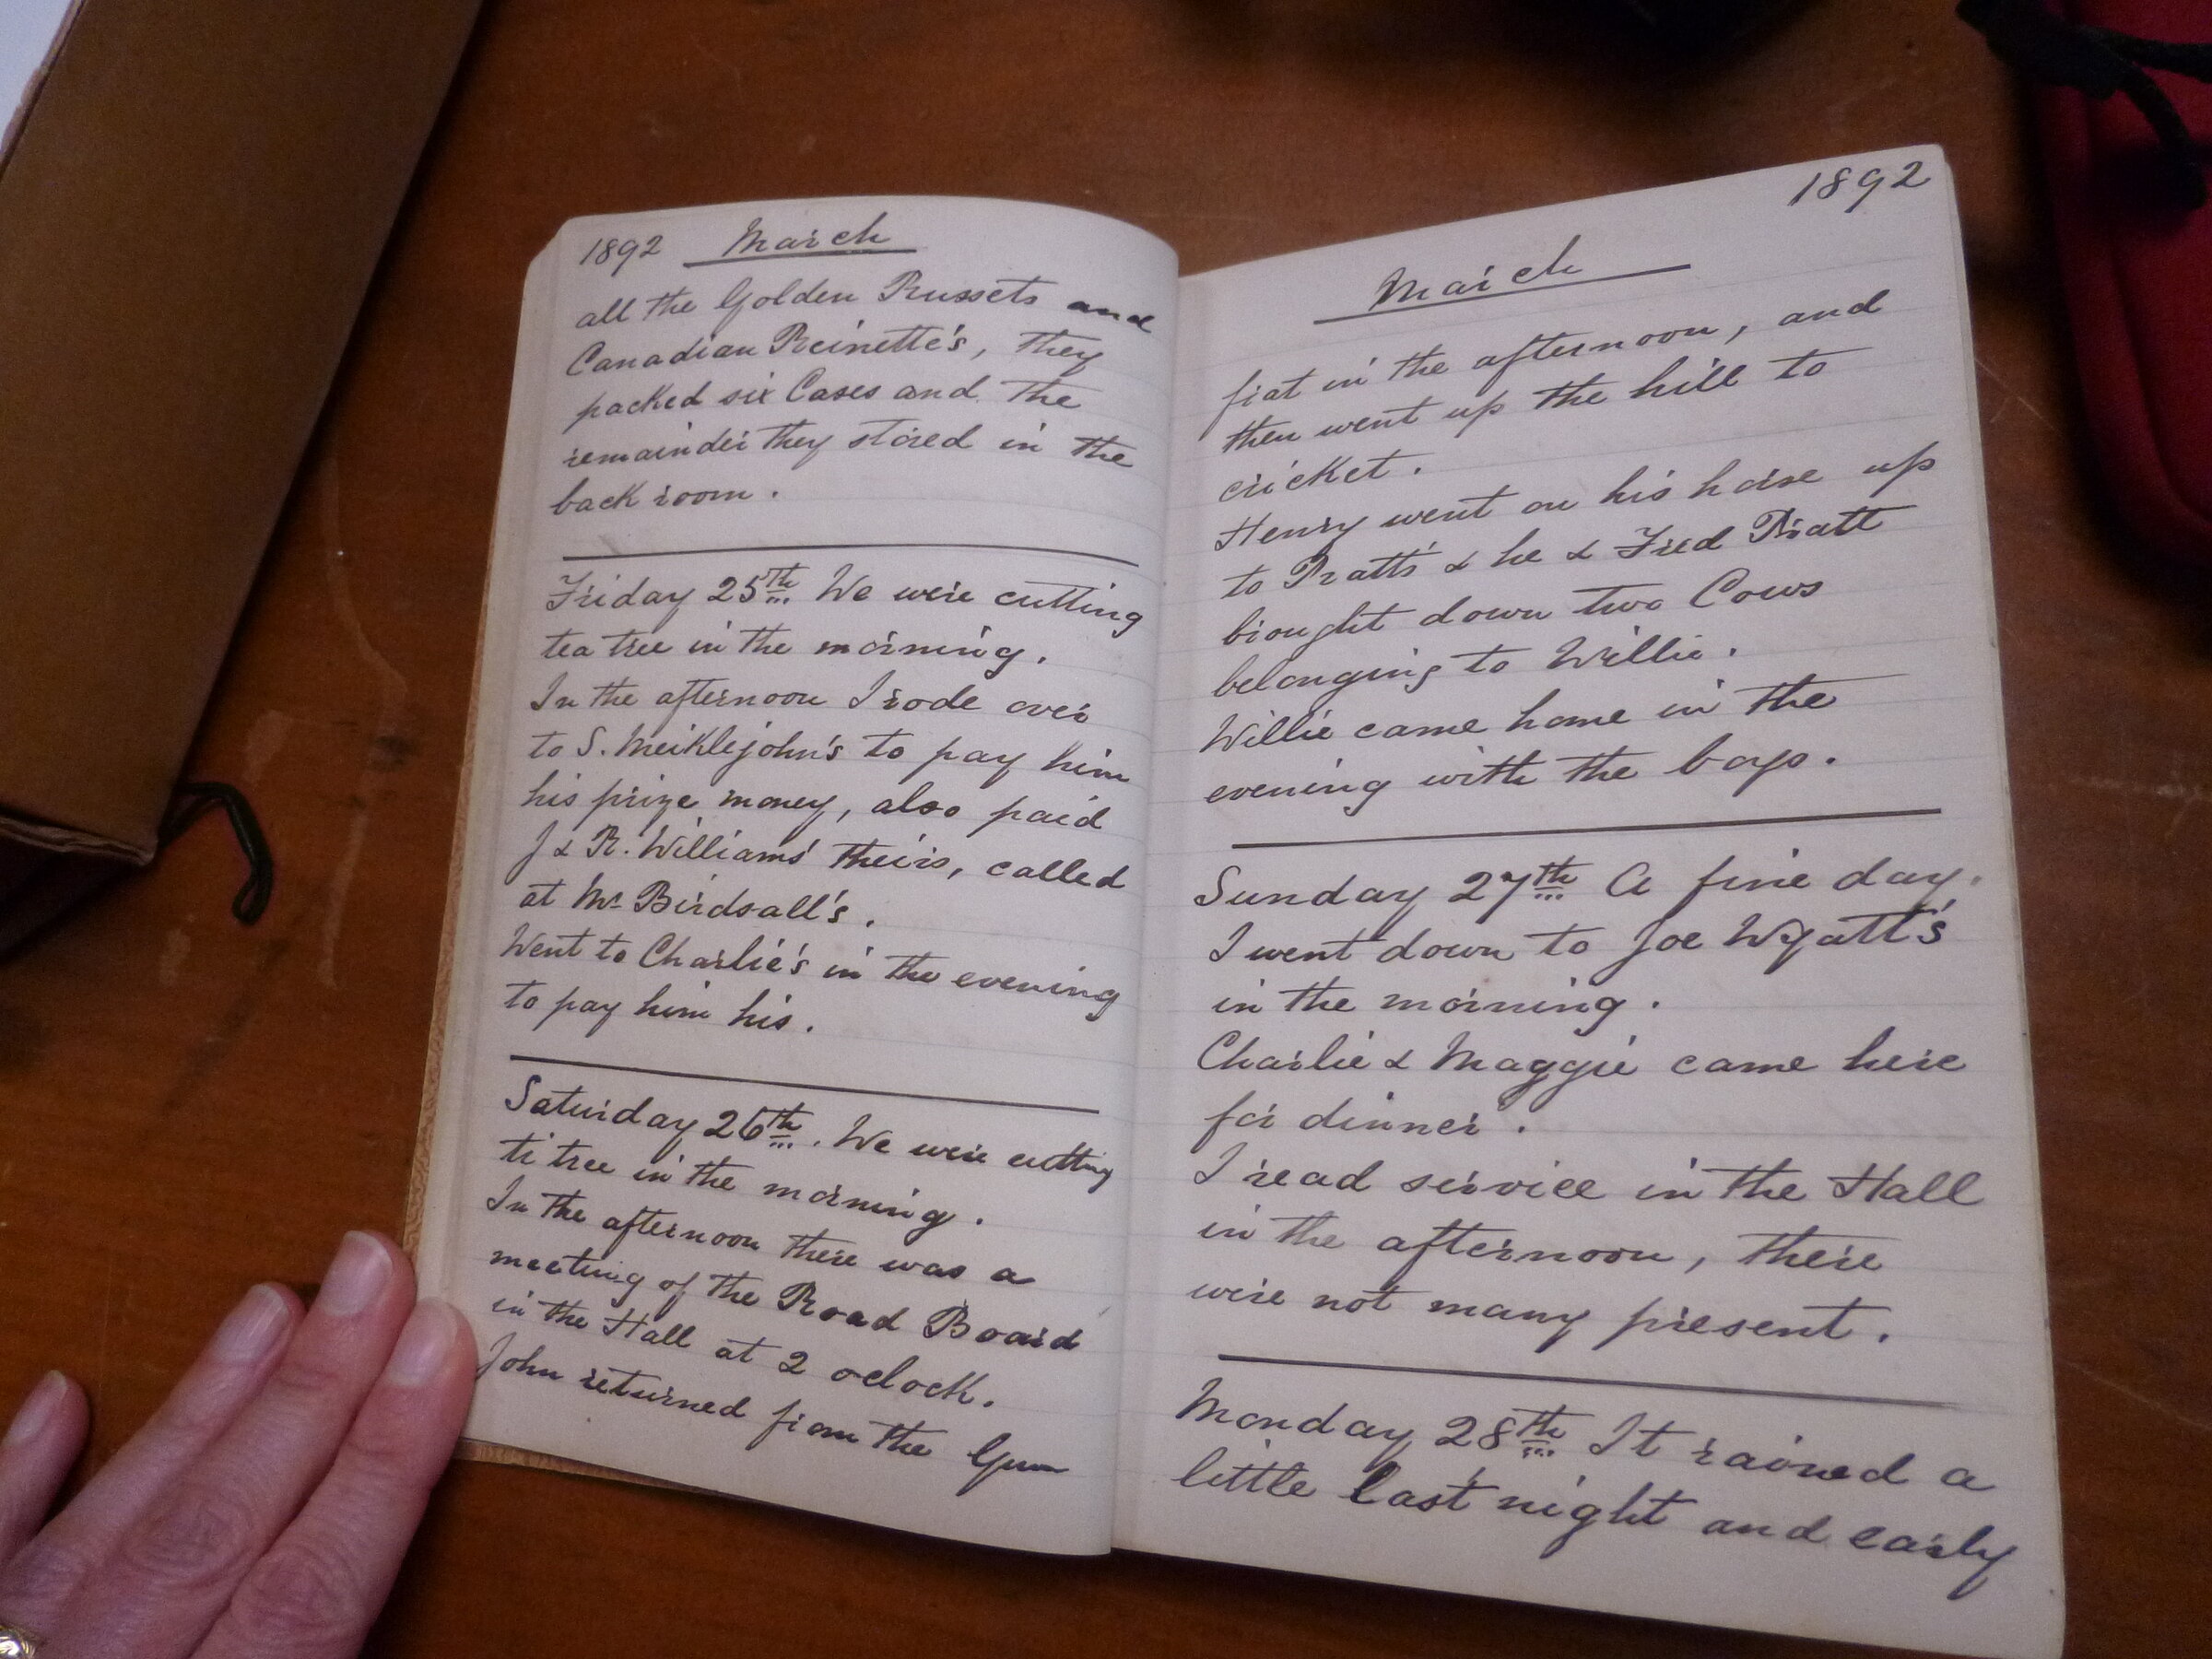 1892 March
all the Golden Russets and
Canadian Reinette's, they
packed six Cases and the
remainder they stored in the
back room.
Friday 25th We were cutting
tea tree in the morning.
In the afternoon I rode over
to S. Meiklejohn's to pay him
his prize money, also paid
J & R. Williams' theirs, called
at Mr Birdsall's.
Went to Charlie's in the evening
to pay him his.
Saturday 26th. We were cutting
ti tree in the morning.
In the afternoon there was a
meeting of the Road Board
in the Hall at 2 oclock.
John returned from the Gum
1892
March
fiat in the afternoon, and
then went up the hill to
cricket.
Henry went on his horse up
to Pratt's & he & Fred Pratt
brought down two Cows
belonging to Willie.
Willie came home in the
evening with the boys.
Sunday 27th A fine day.
I went down to Joe Wyatt's
in the morning.
Charlie & Maggie came here
for dinner.
I read service in the Hall
in the afternoon, there
were not many present.
Monday 28th It rained a
little last night and early